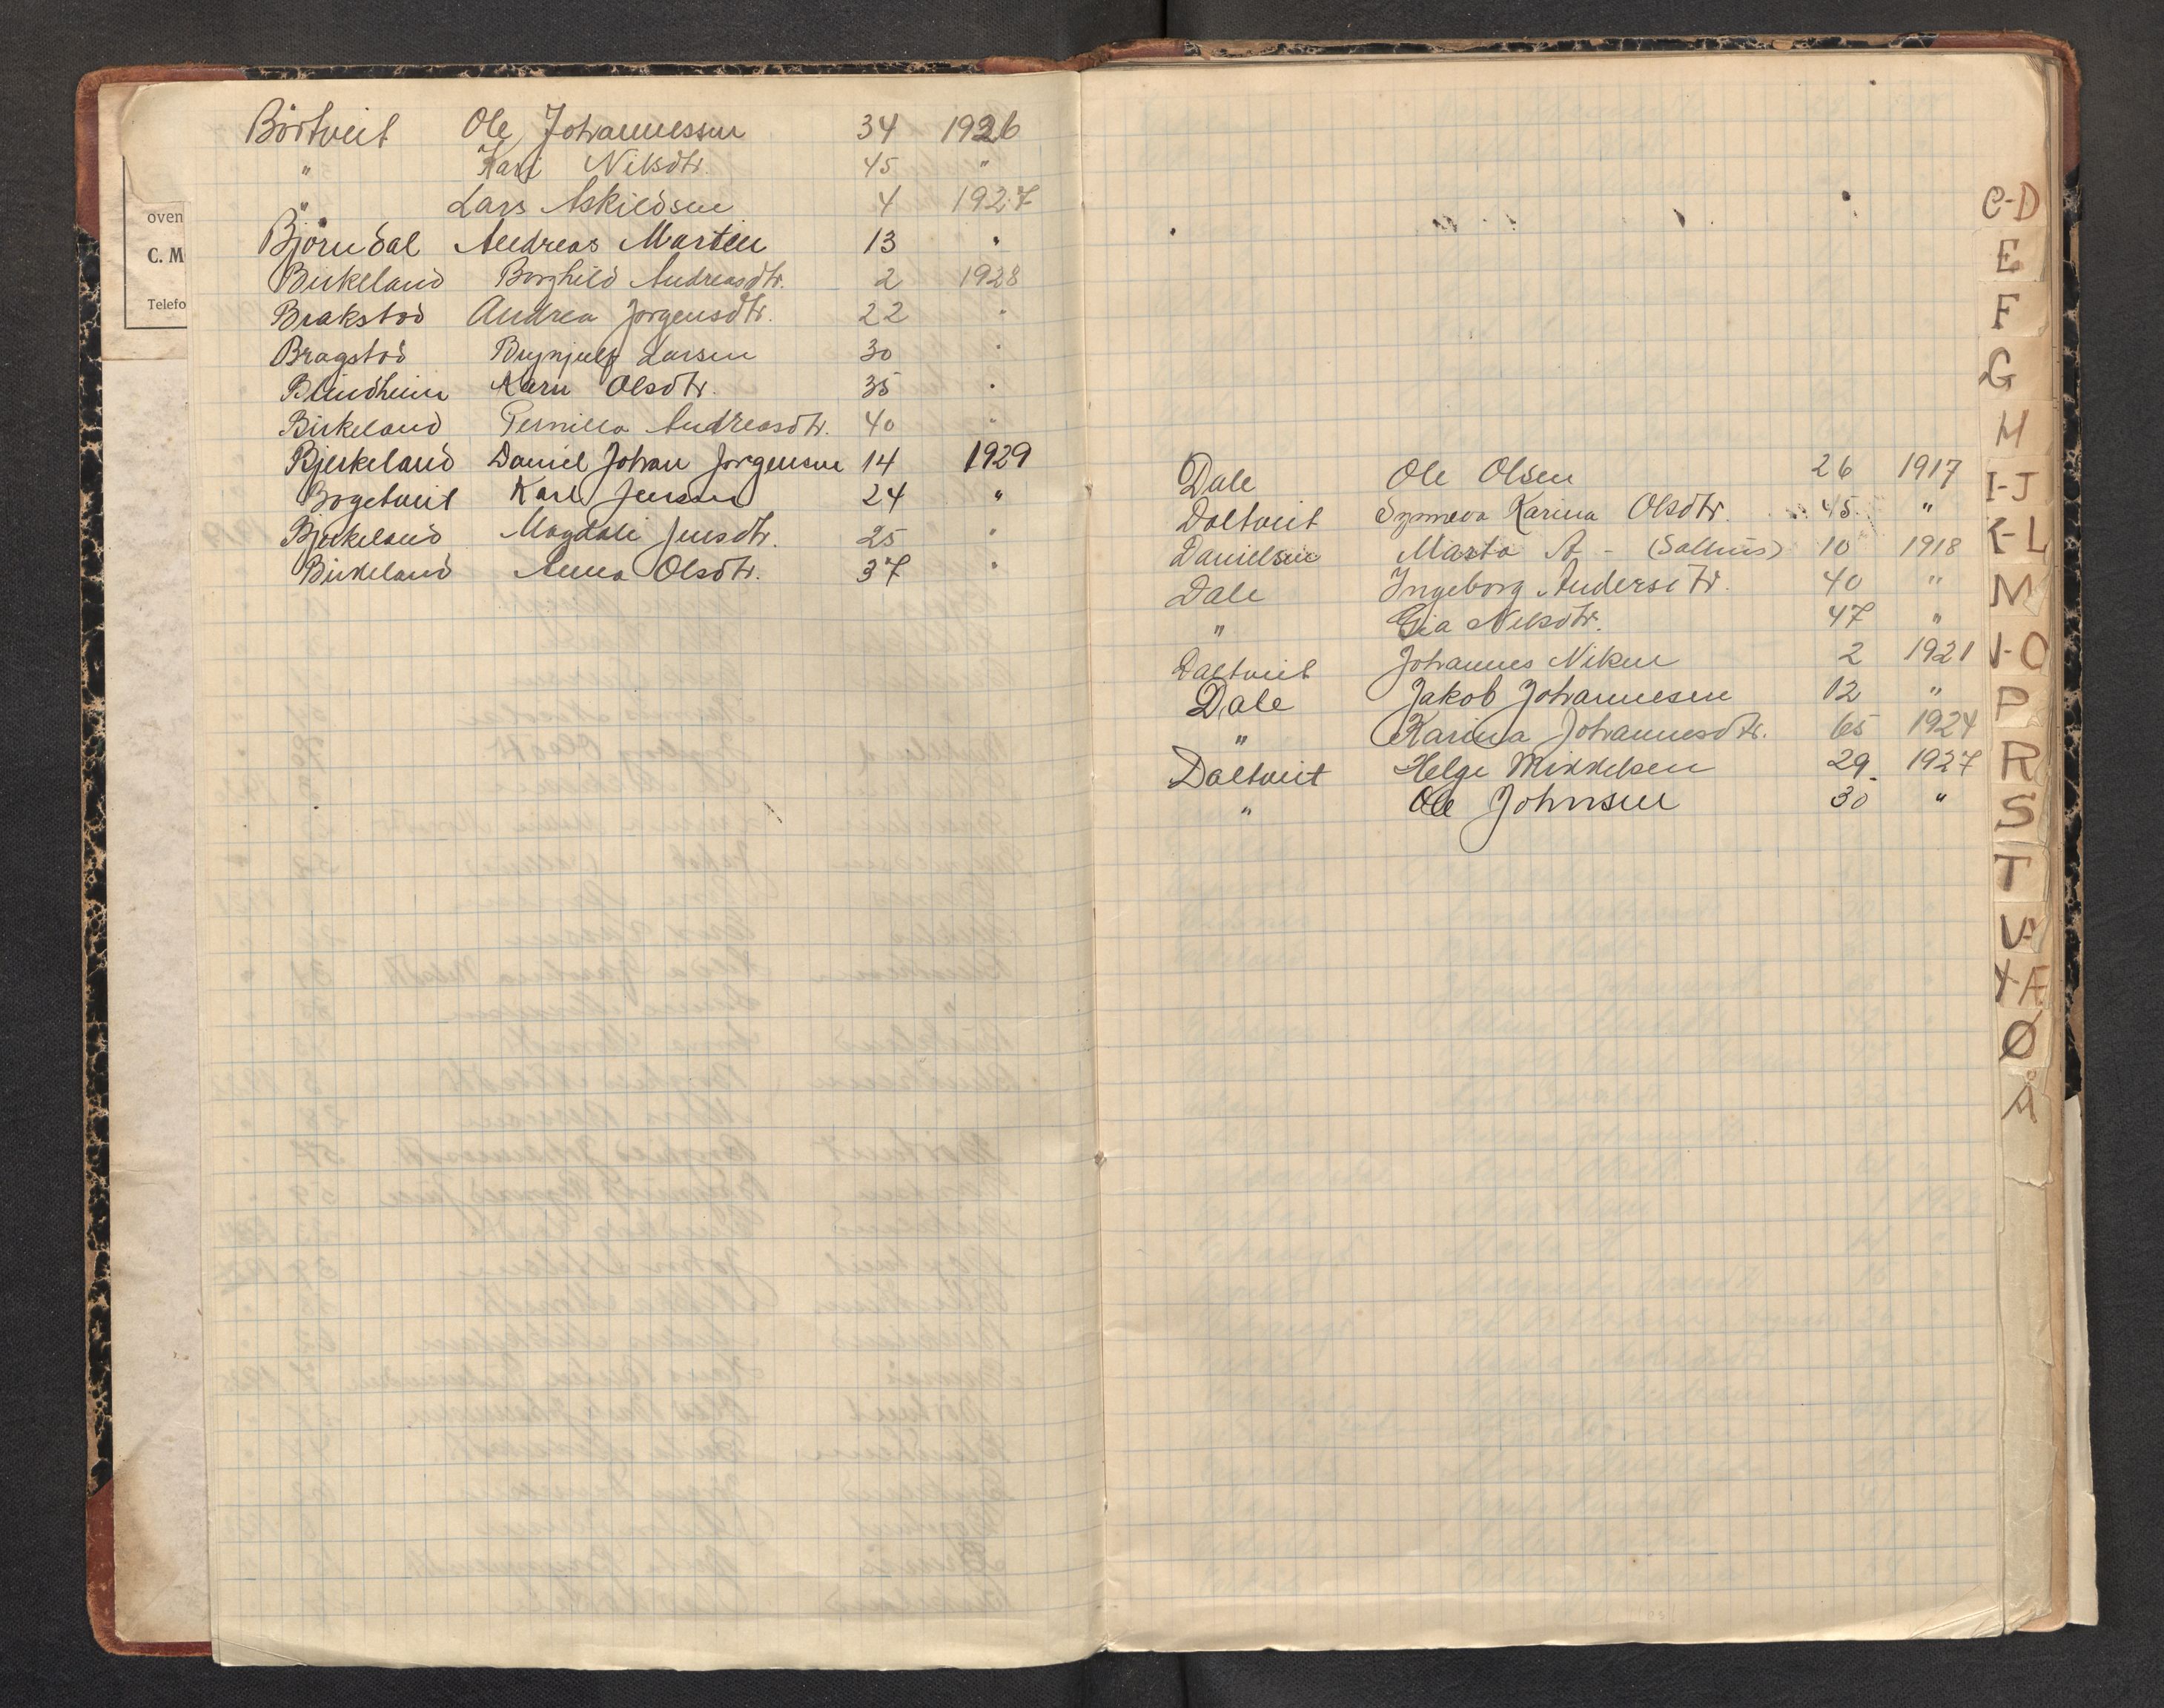 Börtveit Ole Johannessen 34 1926
" Kari Nilsdtr. 45 "
" Lars Askildsen 4 1927
Björndal Andreas Martin 13 "
Birkeland Borghild Andreasdtr. 2 1928
Brakstad Andrea Jørgensdtr. 22 "
Bragstad Brynjulf Larsen 30 "
Blindheim Karn Olsdtr. 35 "
Birkeland Pernilla Andreasdtr. 40 "
Bjerkeland Daniel Johan Jørgensen 14 1929
Bogetveit Karl Jensen 24 "
Bjerkeland Magdali Jensdtr. 25 "
Birkeland Anna Olsdtr. 37 "
oven
C. M
Telefo
Dale Ole Olsen 26 1917
Daltveit Synneva Karina Olsdtr. 45 "
Danielsen Marta A - (Salhus) 10 1918
Dale Ingeborg Andersdtr. 40 "
" Nilsdtr. 47 "
Daltveit Johannes Nilsen 2 1921
Dale Jakob Johannesen 12 "
" Karina Johannesdtr. 65 1924
Daltveit Helge Mikkelsen 29. 1927
" Ole Johnsen 30 "
C-D
E
F
G
H
I-J
K-L
M
N-O
P
R
S
T
U-V
Y-Æ
Ø
Å